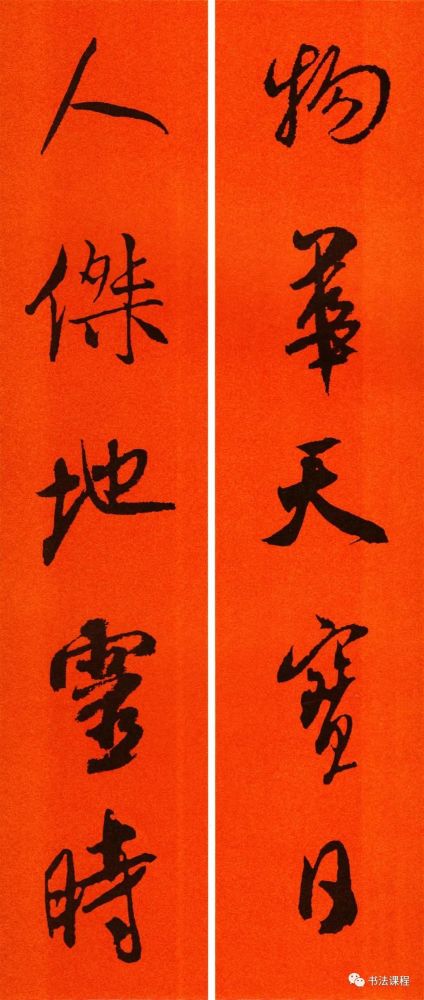 物華天寶日
人傑地靈時
书法课程